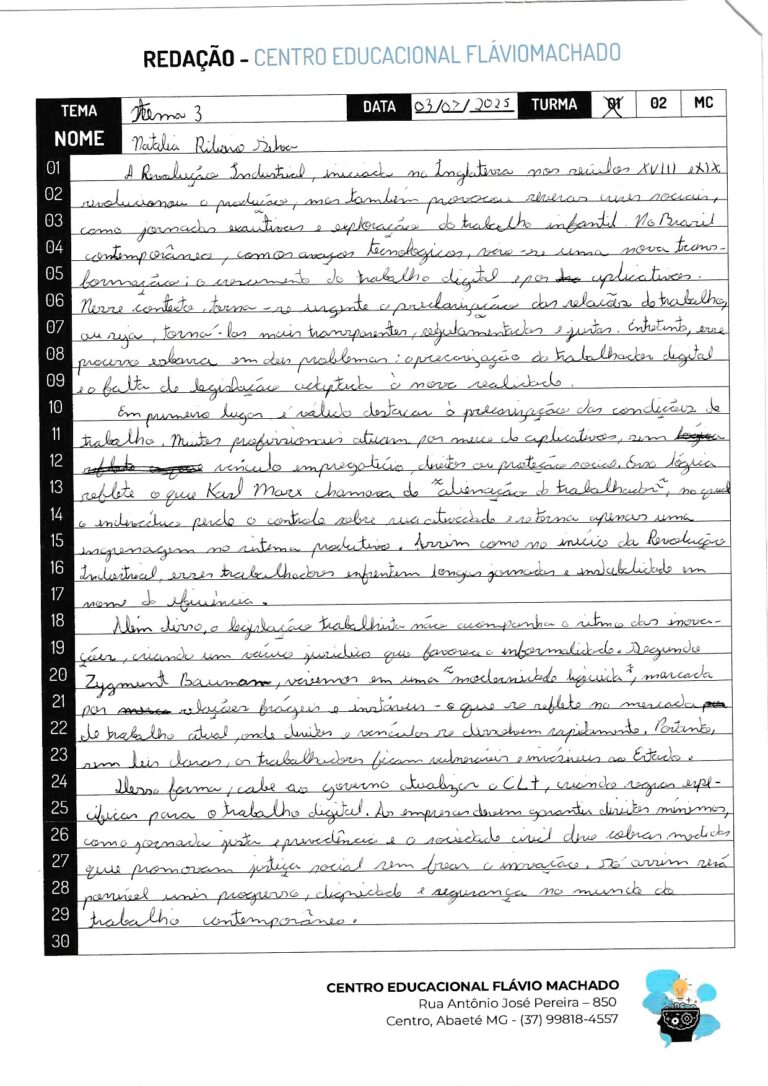 REDAÇÃO - CENTRO EDUCACIONAL FLÁVIOMACHADO
TEMA Tema 3 DATA 03/07/2025 TURMA 01 02 MC
NOME Natalia Ribeiro Silva
01 A Revolução Industrial, iniciada na Inglaterra nos séculos XVIII e XIX,
02 revolucionou a produção, mas também provocou severas crises sociais,
03 como jornadas exaustivas e exploração do trabalho infantil. No Brasil
04 contemporâneo, com os avanços tecnologicos, vive-se uma nova trans-
05 formação: o crescimento do trabalho digital e por aplicativos.
06 Nesse contexto, torna-se urgente a preclarização das relações do trabalho,
07 ou seja, torná-las mais transparentes, regulamentadas e justas. Entretanto, esse
08 processo esbarra em dois problemas: a precarização do trabalhador digital
09 e a falta de legislação adaptada à nova realidade.
10 Em primeiro lugar, é válido destacar à precarização das condições de
11 trabalho. Muitos profissionais atuam por meio de aplicativos, sem
12 vínculo empregatício, direitos ou proteção social. Essa lógica
13 reflete o que Karl Marx chamava de "alienação do trabalhador", no qual
14 o indivíduo perde o controle sobre sua atividade e se torna apenas uma
15 engrenagem no sistema produtivo. Assim como no início da Revolução
16 Industrial, esses trabalhadores enfrentam longas jornadas e instabilidade em
17 nome da eficiência.
18 Além disso, a legislação trabalhista não acompanha o ritmo das inova-
19 ções, criando um vácuo jurídico que favorece a informalidade. Segundo
20 Zygmunt Bauman, vivemos em uma "modernidade líquida", marcada
21 por relações frágeis e instáveis - o que se reflete no mercado
22 de trabalho atual, onde direitos e vínculos se dissolvem rapidamente. Portanto,
23 sem leis claras, os trabalhadores ficam vulneráveis e invisíveis ao Estado.
24 Dessa forma, cabe ao governo atualizar a CLT, criando regras espe-
25 cíficas para o trabalho digital. As empresas devem garantir direitos mínimos,
26 como jornada justa e previdência e a sociedade civil deve cobrar medidas
27 que promovam justiça social sem frear a inovação. Só assim será
28 possível unir progresso, dignidade e segurança no mundo do
29 trabalho contemporâneo.
30
CENTRO EDUCACIONAL FLÁVIO MACHADO
Rua Antônio José Pereira – 850
Centro, Abaeté MG - (37) 99818-4557